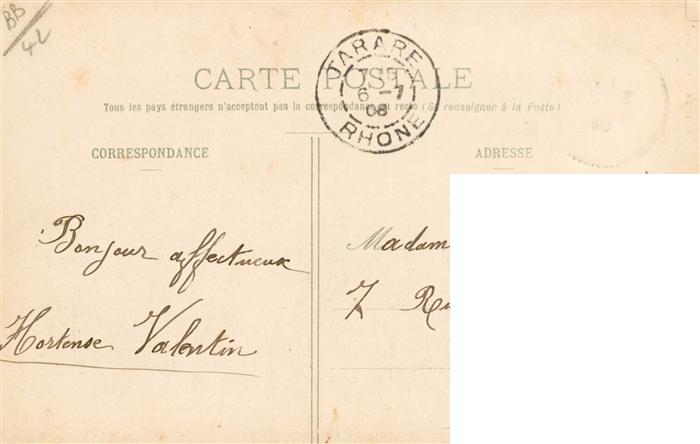 BB
42
CARTE POSTALE
Tous les pays étrangers n'acceptent pas la correspondance au recto (Se renseigner à la Poste)
TARARE
6 - 7
08
RHONE
CORRESPONDANCE
ADRESSE
Bonjour affectueux
Hortense Valentin
Madam
7 Ru